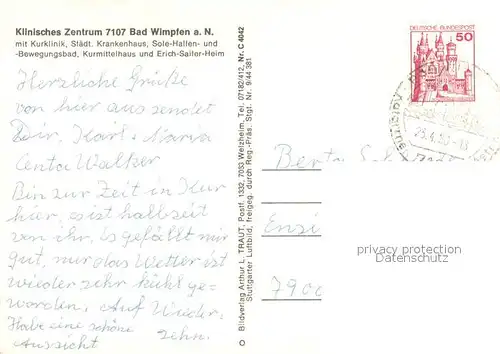 Klinisches Zentrum 7107 Bad Wimpfen a. N.
mit Kurklinik, Städt. Krankenhaus, Sole-Hallen- und
-Bewegungsbad, Kurmittelhaus und Erich-Sailer-Heim
Herzliche Grüße
von hier aus sendet
Dir, Karl - Maria
Centa Walker
Bin zur Zeit in Kur
hier, es ist halbzeit
von ihr, es gefällt mir
gut, nur das Wetter ist
wieder sehr kühl ge=
worden. Auf Wieder=
sehn.
Habe eine schöne
Aussicht
Bildverlag Arthur L. TRAUT, Postf. 1332, 7033 Welzheim, Tel. 07182/412, Nr. C 4042
Stuttgarter Luftbild, freigeg. durch Reg.-Präs. Stgt. Nr. 9/44 381
DEUTSCHE BUNDESPOST
50
Berta
Ensi
7900
privacy protection
Datenschutz